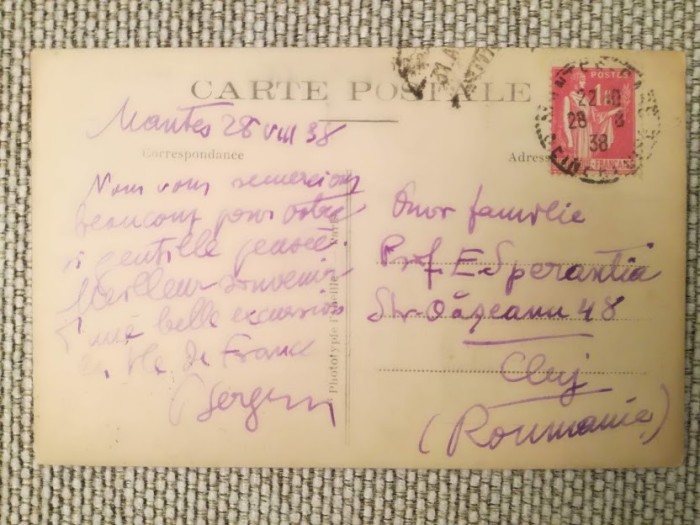 CARTE POSTALE
Mantes 28 VIII 38
Correspondance
Nous vous remercions
beaucoup pour votre
si gentille pensée.
Meilleur souvenir
d'une belle excursion
en Ile de France
Phototypie
POSTES
22
28 8
38
Adresse
Onor familie
Prof. E Sperantia
Str. 48
Cluj
(Roumanie)